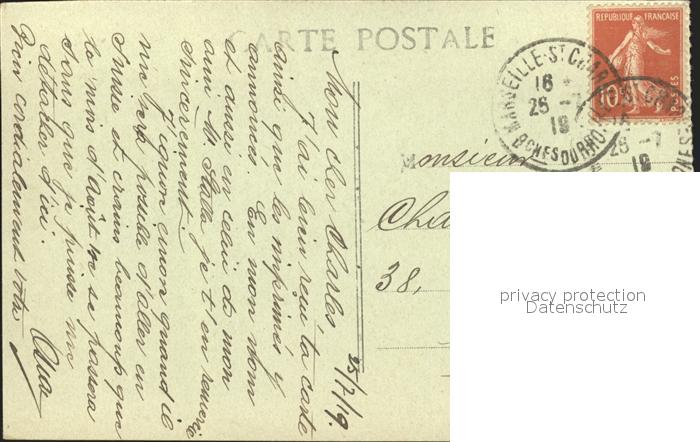 CARTE POSTALE
REPUBLIQUE FRANÇAISE
10
POSTES
MARSEILLE-ST CHARLES
16
25 -7
19
BCHES DU RHONE
25 -7
19
Monsieur
38,
privacy protection
Datenschutz
25/7/19.
Mon cher Charles
J'ai bien reçu ta carte
ainsi que les imprimés y
annoncés En mon nom
et aussi en celui de mon
ami M. Stalla je t'en remercie
sincèrement.
J'ignore sinon quand il
me sera possible d'aller en
Suisse et crains beaucoup que
le mois d'Août ne se passera
sans que je puisse me
détacher d'ici.
Bien cordialement votre